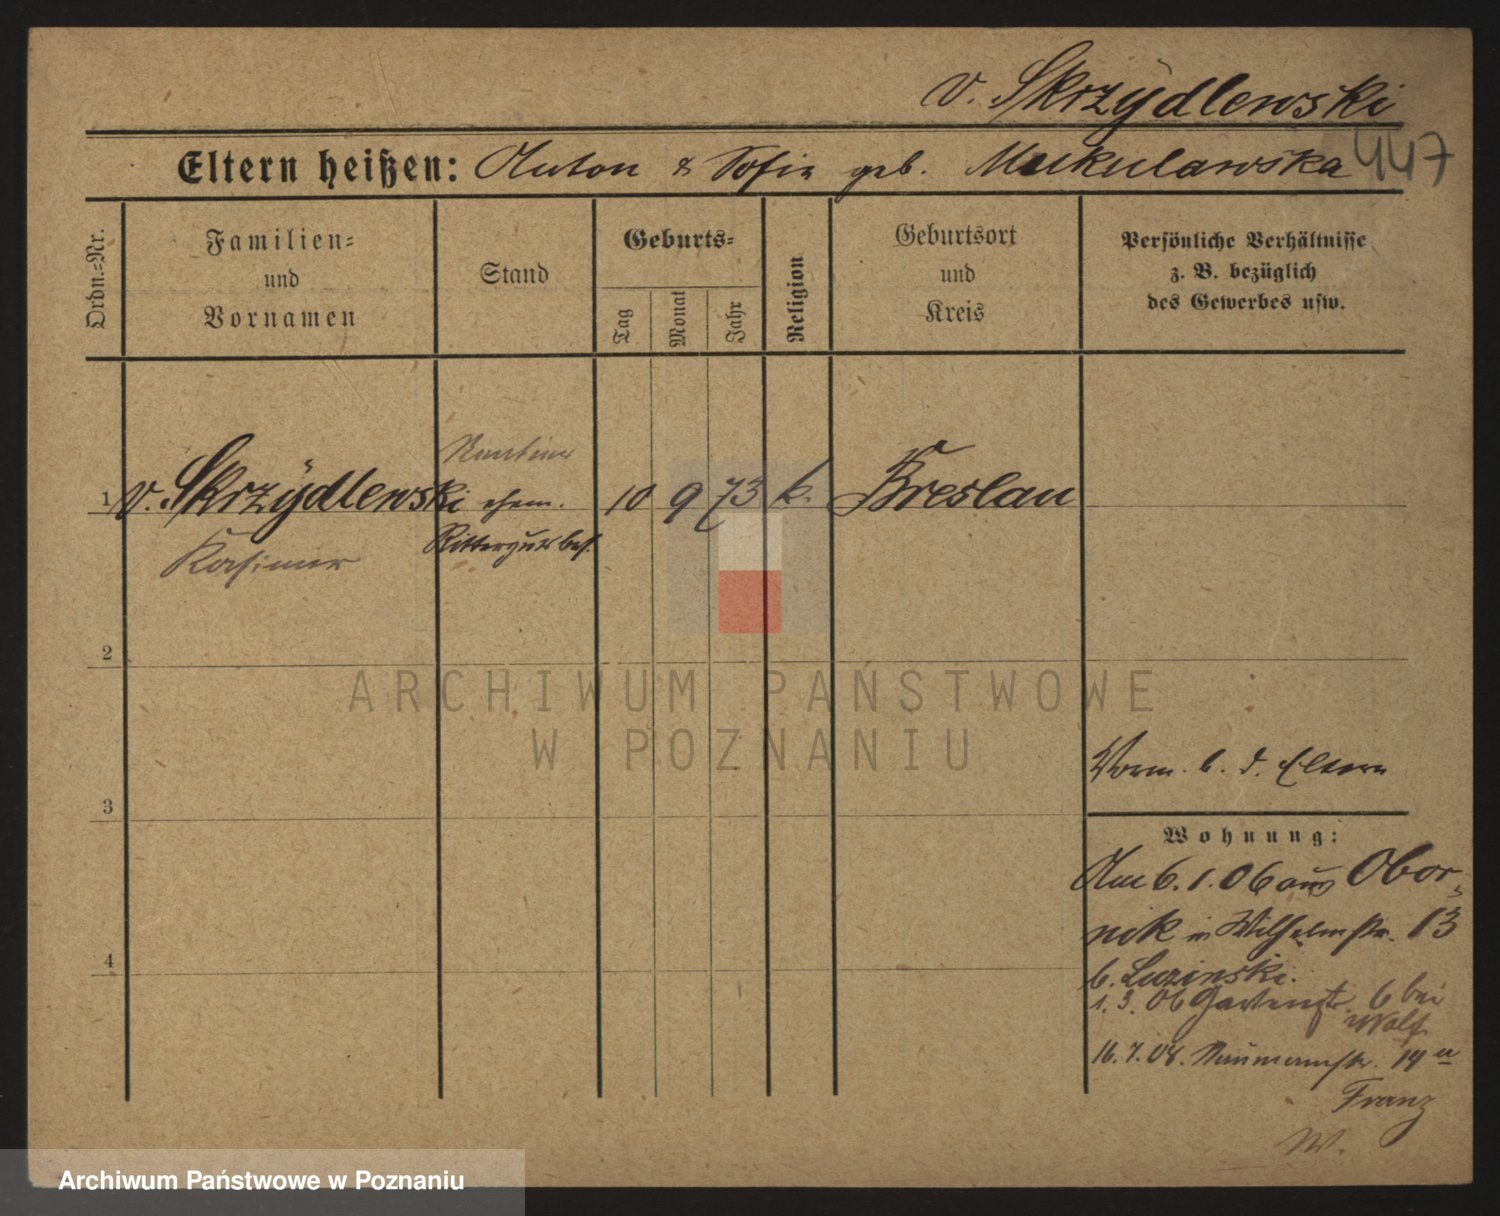 v. Skrzÿdlewski
447
Eltern heißen: Anton & Sofia geb. Mukulawska
Ordn.=Nr.
Familien=
und
Vornamen
Stand
Geburts=
Tag
Monat
Jahr
Religion
Geburtsort
und
Kreis
Persönliche Verhältnisse
z. B. bezüglich
des Gewerbes usw.
Rentier
1 v. Skrzÿdlewski ehem. 10 9 73 k. Breslau
Rittergutsbes.
Kasimir
2
ARCHIWUM PAŃSTWOWE
W POZNANIU
Vorm. b. d. Eltern
3
Wohnung:
Am 6.1.06 aus Obor-
nik in Wilhelmstr. 13
b. Luzinski.
1.3.06 Gartenstr. 6 bei
Wolf
4
16.7.08. Naumannstr. 14 a
Franz
W.
Archiwum Państwowe w Poznaniu